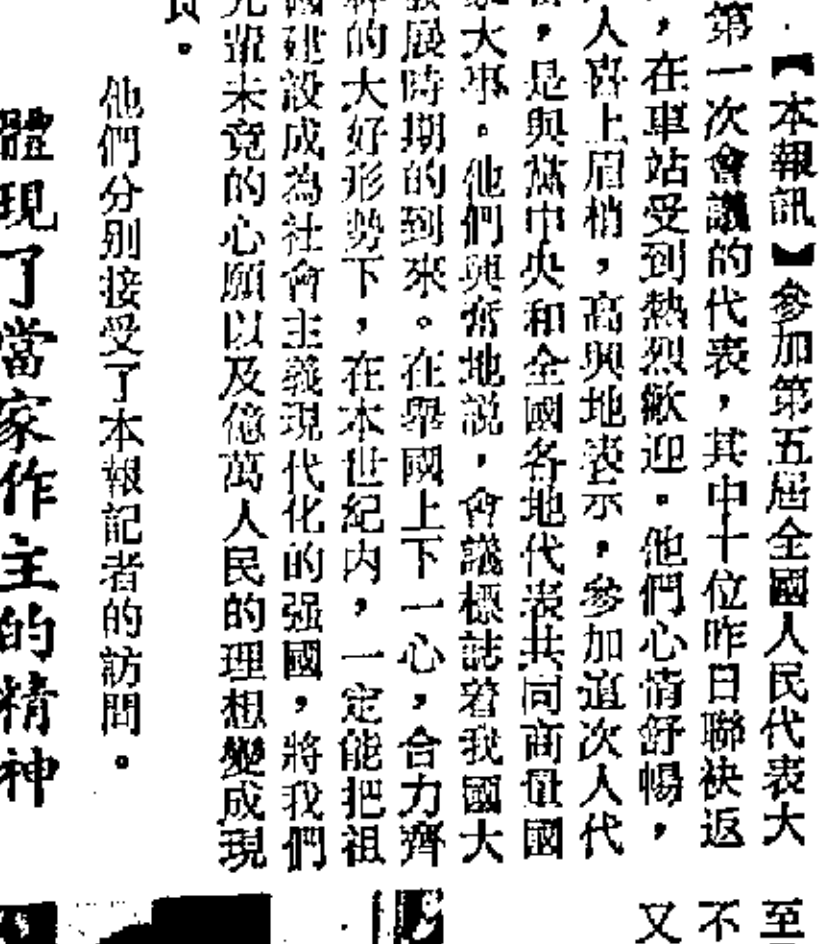 【本報訊】參加第五屆全國人民代表大
第一次會議的代表，其中十位昨日聯袂返
，在車站受到熱烈歡迎。他們心情舒暢，
人喜上眉梢，高興地表示，參加這次人代
，是與黨中央和全國各地代表共同商量國
大事。他們興奮地説，會議標誌着我國大
發展時期的到來。在舉國上下一心，合力齊
的大好形勢下，在本世紀內，一定能把祖
國建設成為社會主義現代化的强國，將我們
先輩未竟的心願以及億萬人民的理想變成現
。
他們分別接受了本報記者的訪問。
體現了當家作主的精神
至
不
又